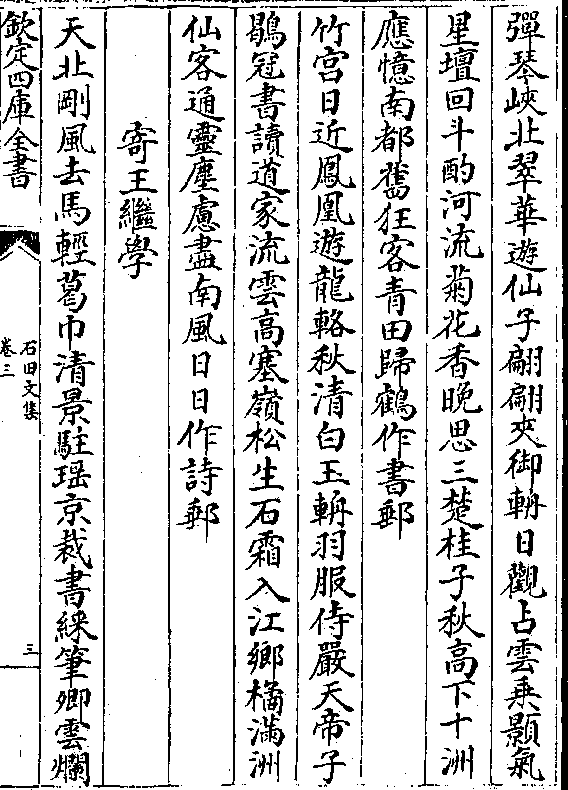 彈琴峽北翠華遊仙子翩翩夾御輈日觀占雲乘顥氣
星壇回斗酌河流菊花香晚思三楚桂子秋高下十洲
應憶南都舊狂客青田歸鶴作書郵
竹宫日近鳳凰遊龍輅秋清白玉輈羽服侍嚴天帝子
鶡冠書讀道家流雲高塞嶺松生石霜入江鄉橘滿洲
仙客通靈塵慮盡南風日日作詩郵
寄王繼學
天北剛風去馬輕葛巾清景駐瑶京裁書綵筆卿雲爛
欽定四庫全書
石田文集
卷三
三